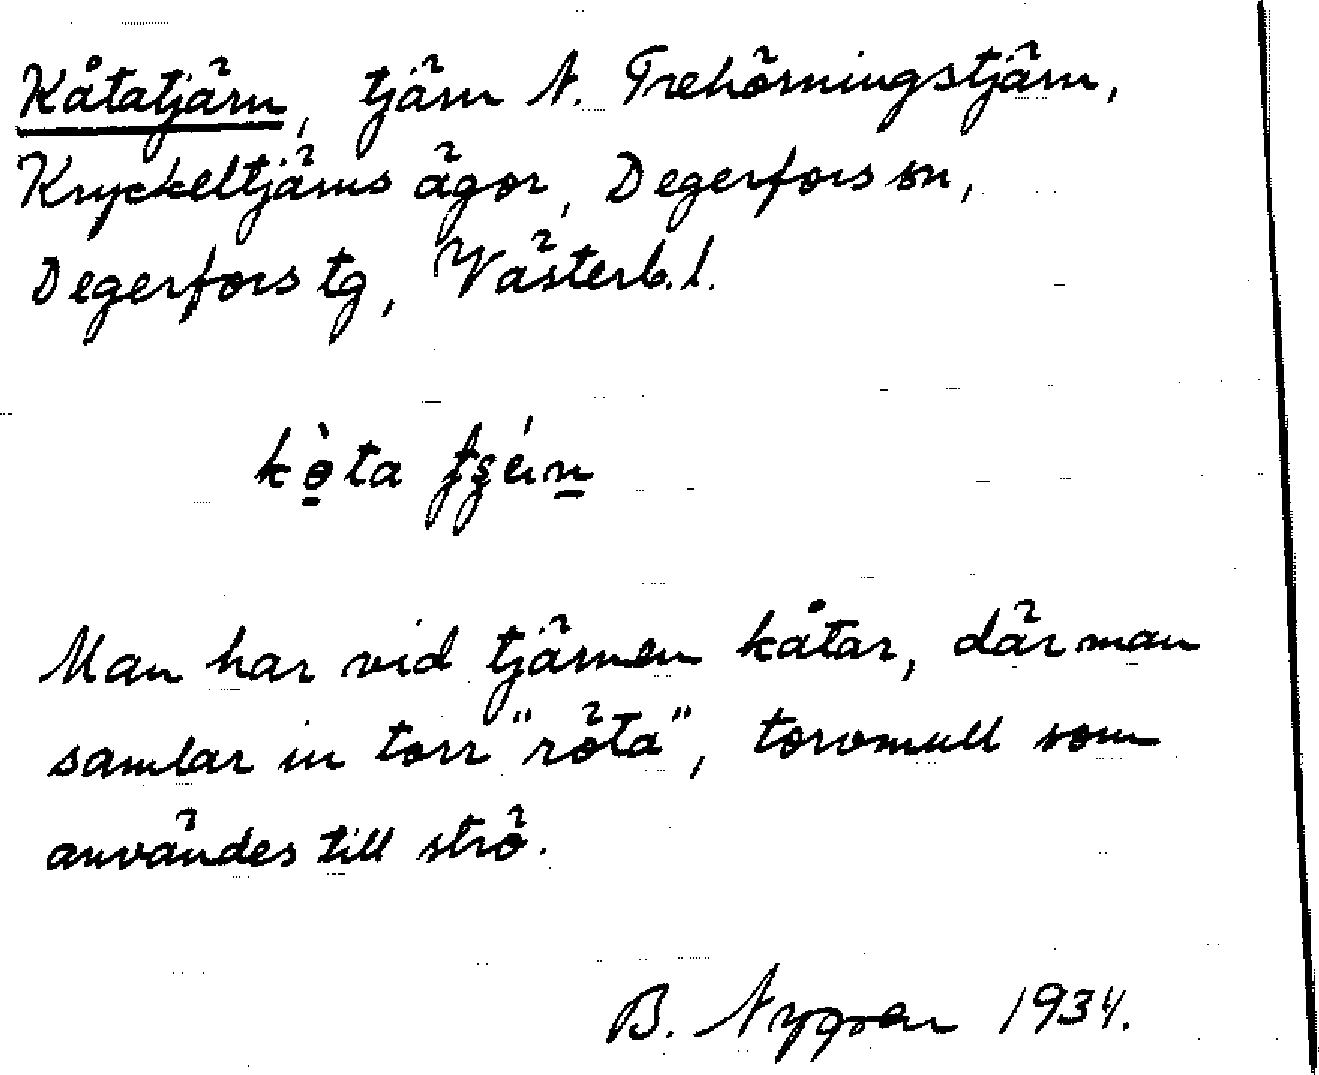 Kåtatjärn, tjärn N. Trehörningstjärn,
Kryckeltjärns ägor, Degerfors sn,
Degerfors tg, Västerb. l.
Man har vid tjärnen kåtar, där man
samlar in torr "röta", torvmull som
användes till strö.
B. Nygren 1934.